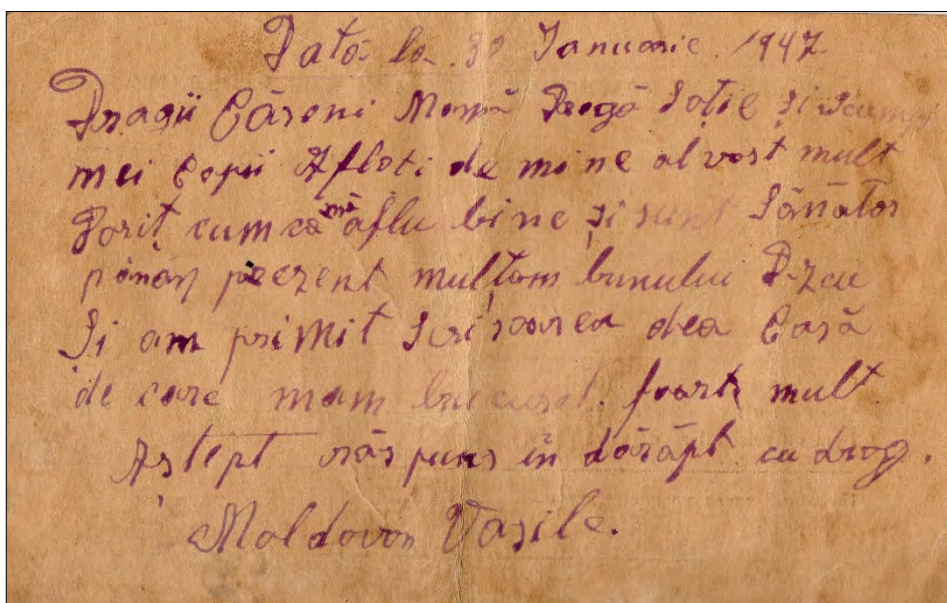 Dată la. 30 Ianuarie. 1947
Dragii Părenti Mamă Dragă Soție și Scumpi
mei Copii Aflați de mine al vost mult
Dorit, cum că mă aflu bine și sunt Sănătos
pănăn prezent mulțam bunului D-zeu
Și am primit Scrisoarea dea Casă
de care mam bucurat. foarte mult
Aștept răspuns în dărăpt cu drag.
Moldovan Vasile.